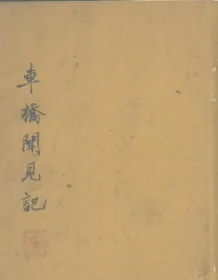 車橋聞見記